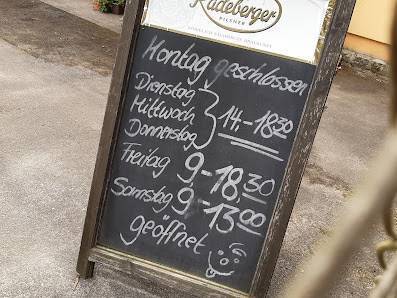 Radeberger
PILSNER
Montag geschlossen
Dienstag
Mittwoch 14,-18.30
Donnerstag
Freitag 9-18.30
Samstag 9-13.00
geöffnet